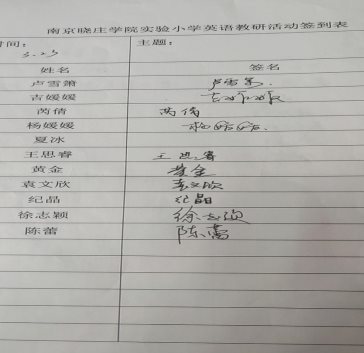 南京晓庄学院实验小学英语教研活动签到表
时间： 主题：
3.25
姓名 签名
卢雪箫 卢雪箫
吉媛媛 吉媛媛
芮倩 芮倩
杨媛媛 杨媛媛
夏冰
王思睿 王思睿
黄金 黄金
袁文欣 袁文欣
纪晶 纪晶
徐志颖 徐志颖
陈蕾 陈蕾